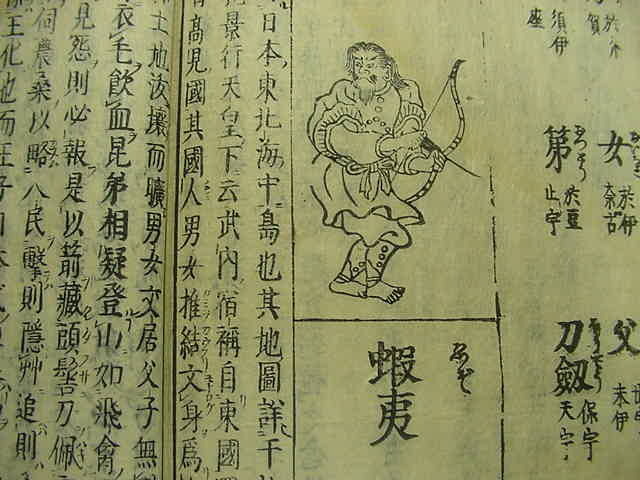 須伊
座
女
於伊
奈古
弟
於豆
止宇
父
末伊
刀劔
保宇
天宇
えぞ
蝦夷
日本東北海中島也其地圖詳于
景行天皇下云武内宿禰自東國
有高見國其國人男女推結文身爲
土地沃壤而曠男女交居父子無
衣毛飲血昆弟相疑登山如飛禽
見怨則必報是以箭藏頭髻刀佩
伺農桑以略人民擊則隱艸追則
王化也而王子日本